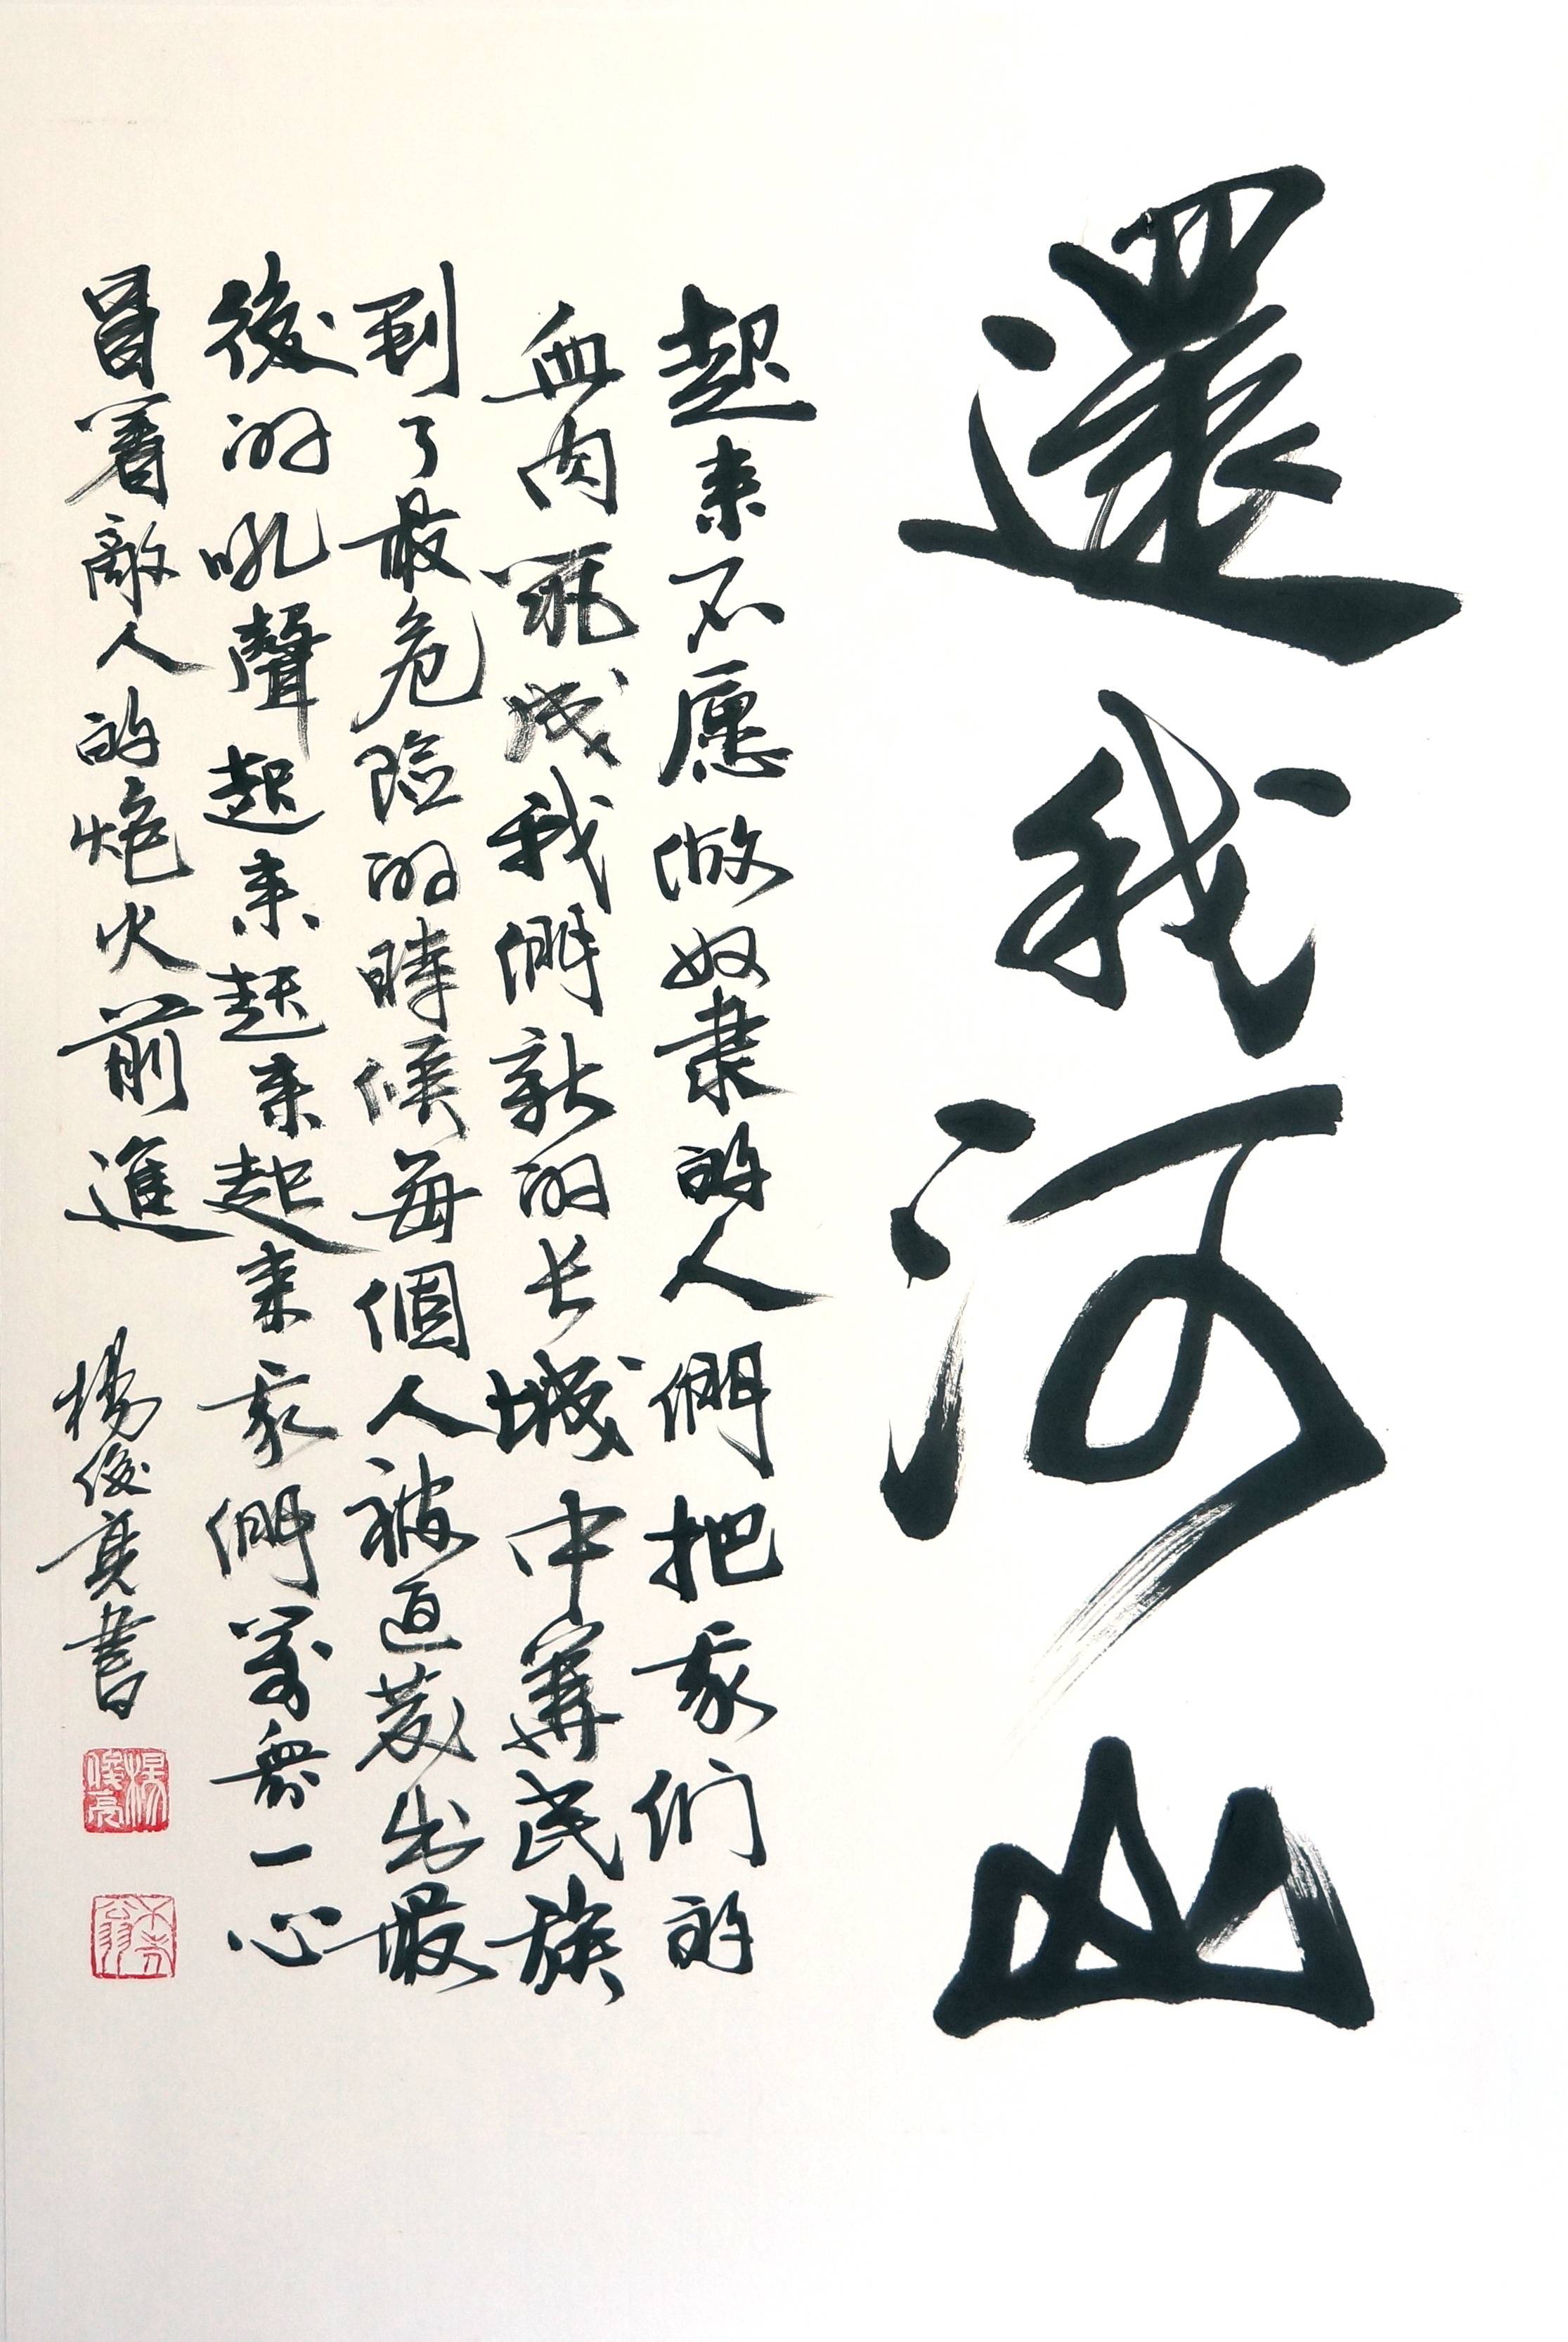 還我河山
起来不愿做奴隶的人們把我们的
血肉筑成我們新的长城中華民族
到了最危险的時候每個人被迫發出最
後的吼聲起来起来起来我們萬衆一心
冒着敵人的炮火前進
楊俊亮書
楊俊亮